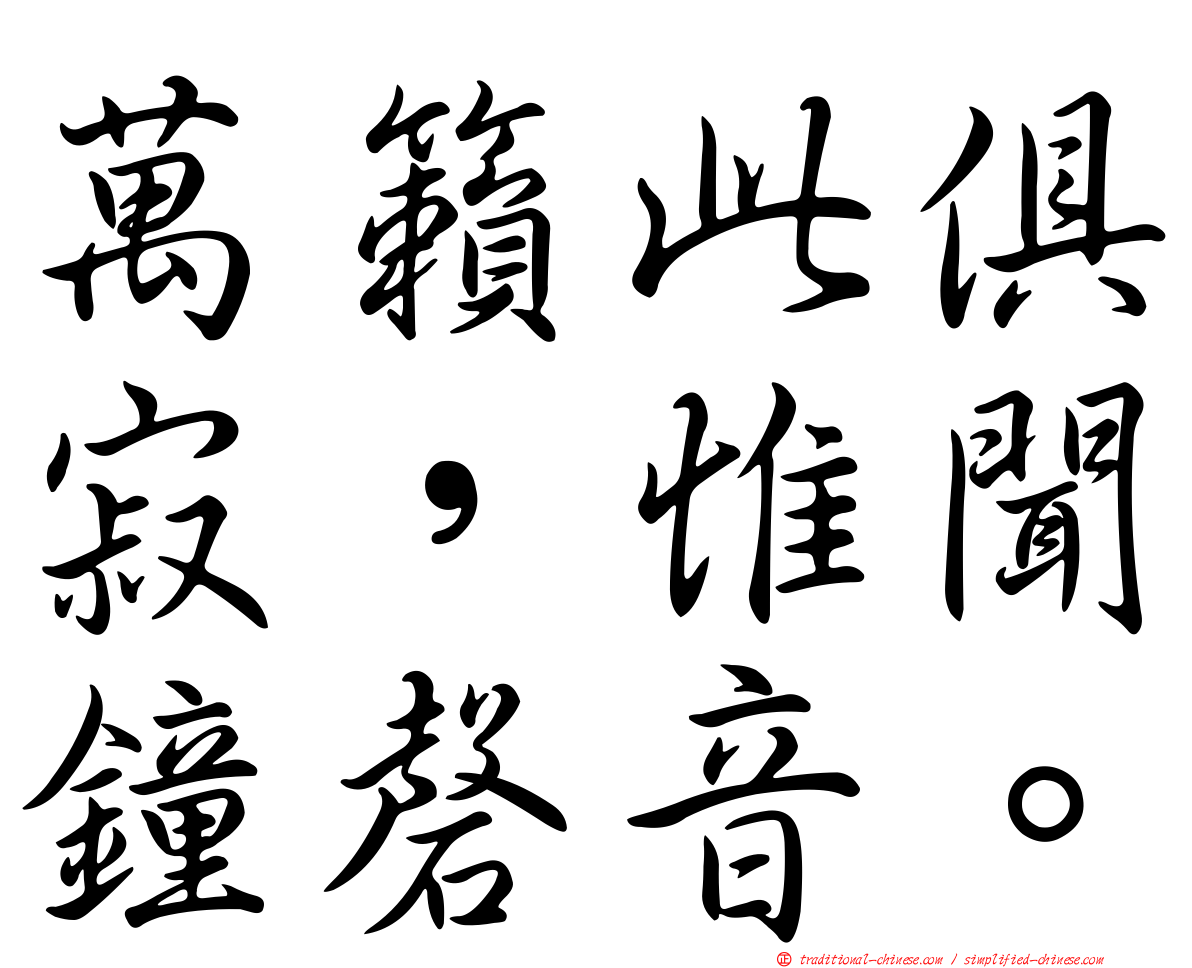 萬籟此俱
寂，惟聞
鐘磬音。
正 traditional-chinese.com / simplified-chinese.com